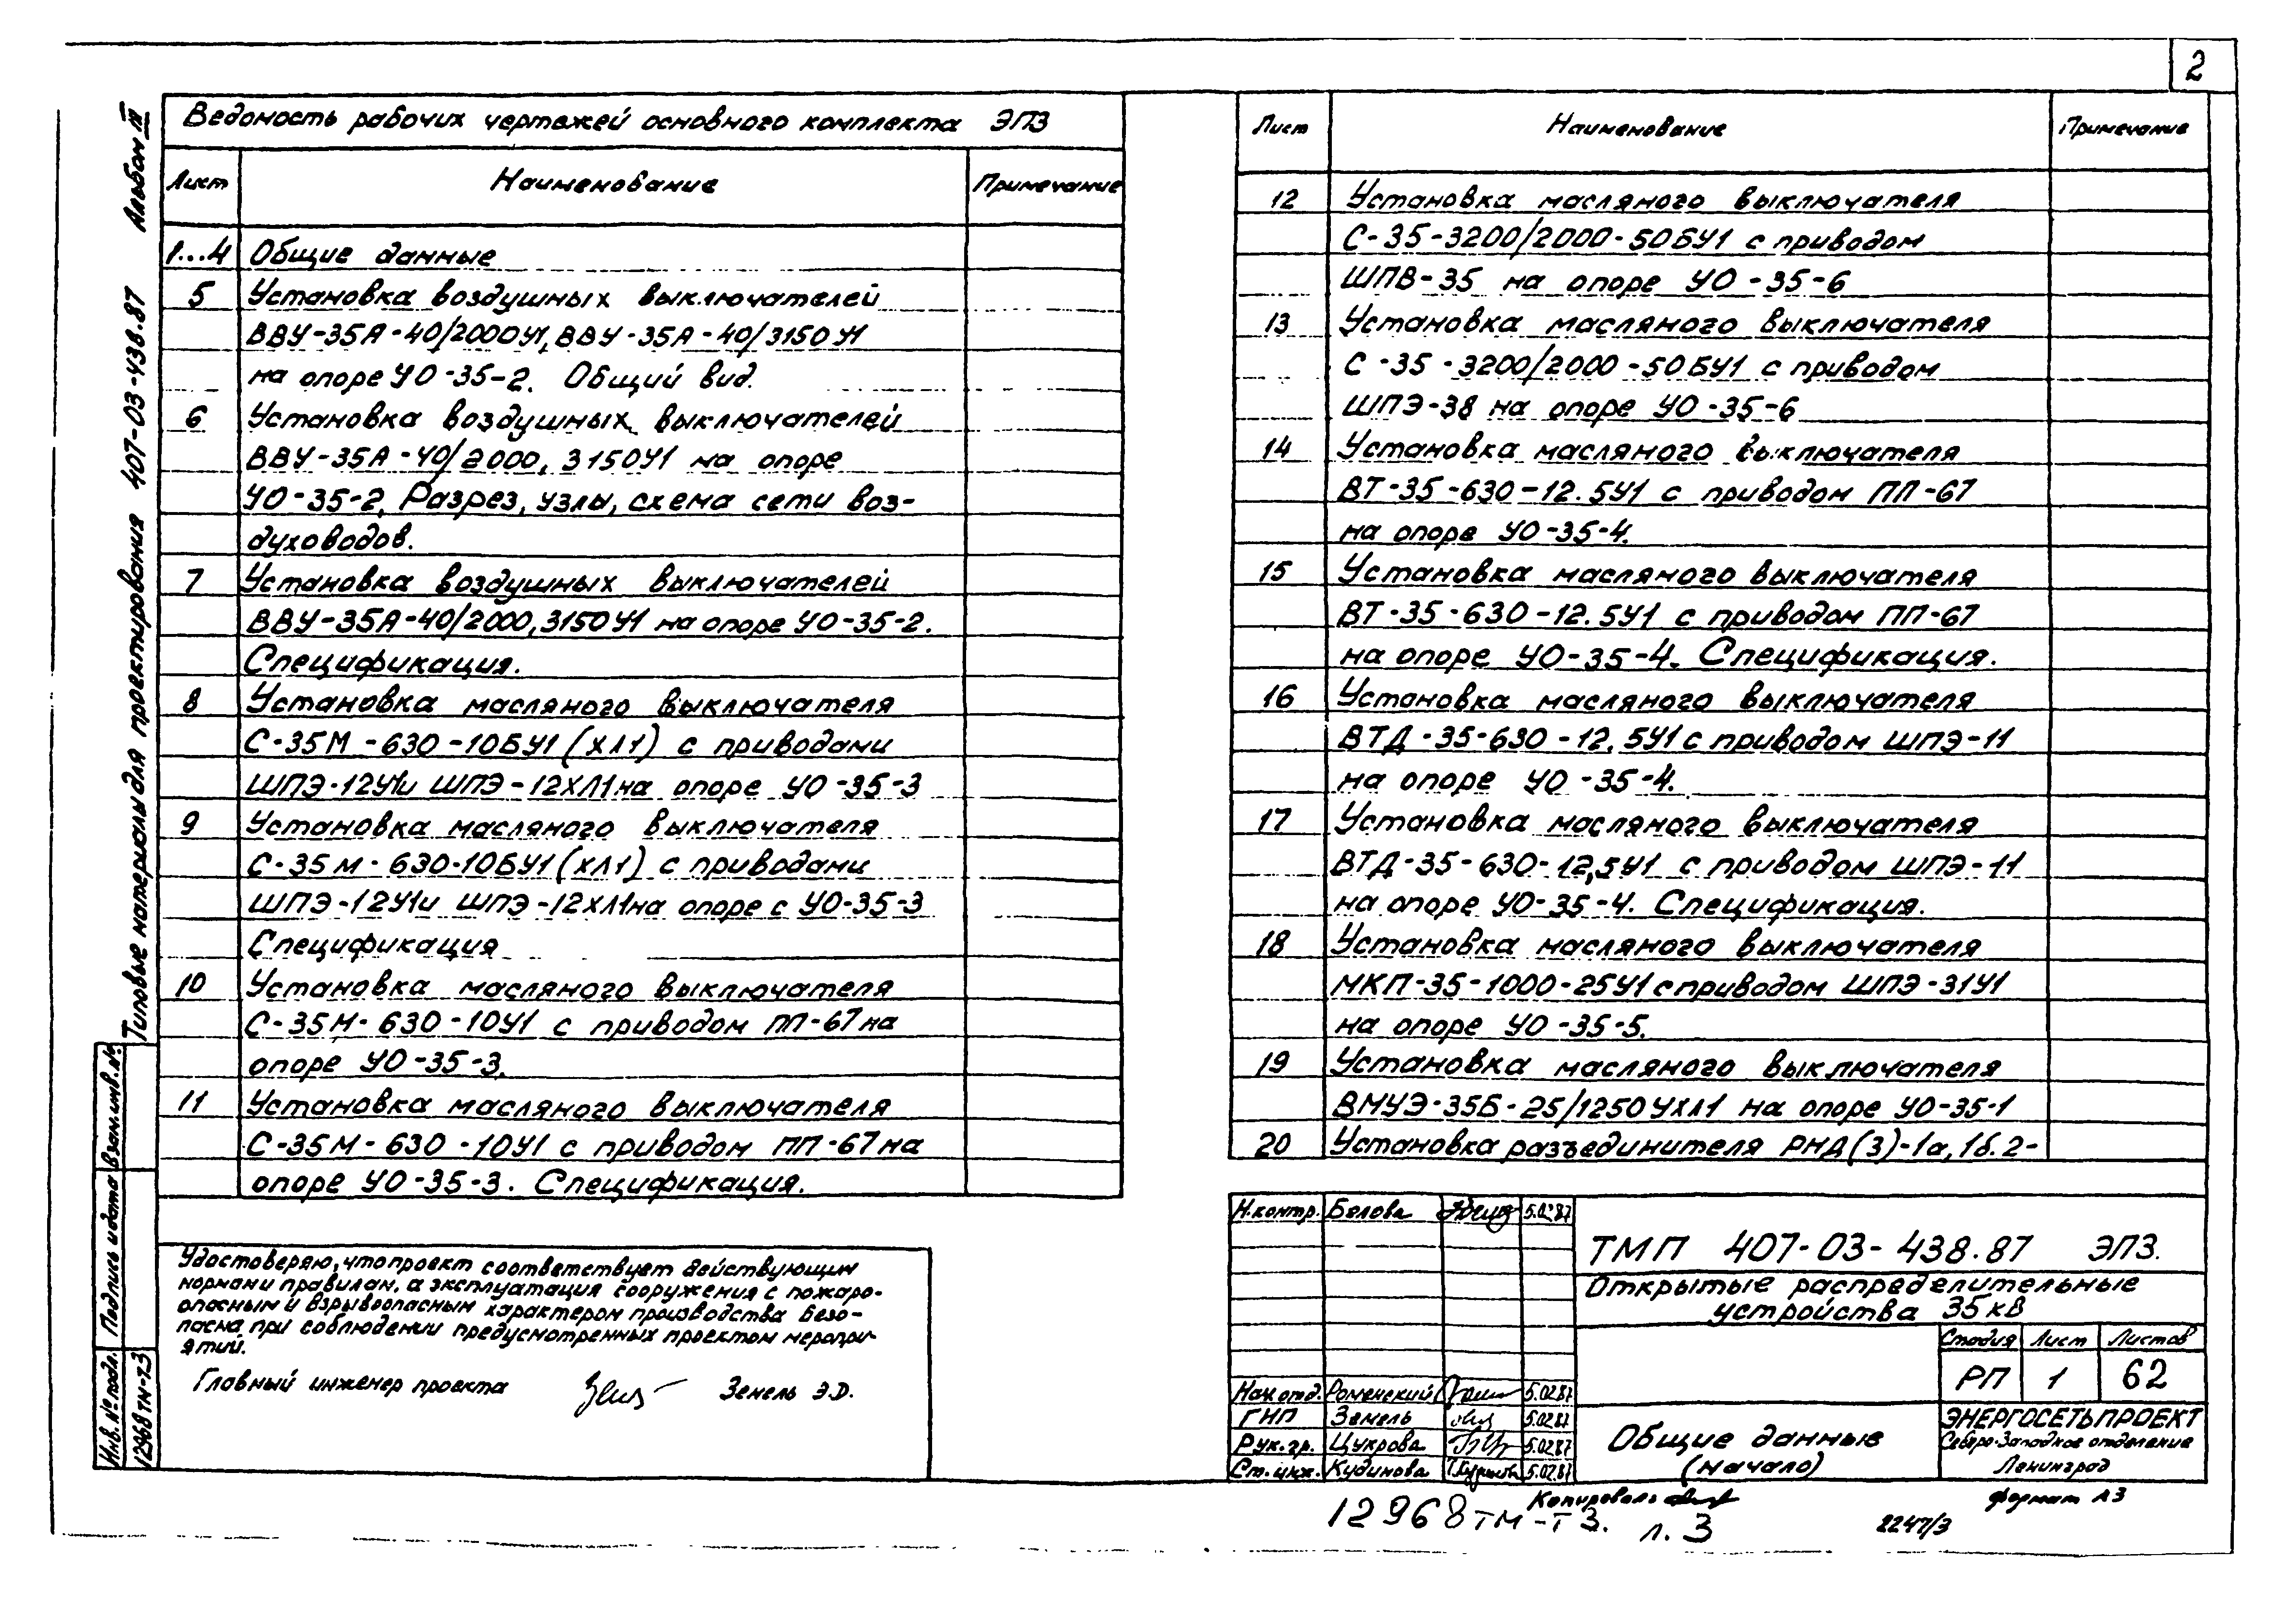 2
Типовые материалы для проектирования 407-03-438.87 Альбом III
Ведомость рабочих чертежей основного комплекта ЭП3
Лист Наименование Примечание
1...4 Общие данные
5 Установка воздушных выключателей
ВВУ-35А-40/2000У1, ВВУ-35А-40/3150У1
на опоре УО-35-2. Общий вид.
6 Установка воздушных выключателей
ВВУ-35А-40/2000, 3150У1 на опоре
УО-35-2. Разрез, узлы, схема сети воз-
духоводов.
7 Установка воздушных выключателей
ВВУ-35А-40/2000, 3150У1 на опоре УО-35-2.
Спецификация.
8 Установка масляного выключателя
С-35М-630-10БУ1 (ХЛ1) с приводами
ШПЭ-12У1и ШПЭ-12ХЛ1на опоре УО-35-3
9 Установка масляного выключателя
С-35М-630-10БУ1 (ХЛ1) с приводами
ШПЭ-12У1и ШПЭ-12ХЛ1на опоре с УО-35-3
Спецификация
10 Установка масляного выключателя
С-35М-630-10У1 с приводом ПП-67 на
опоре УО-35-3.
11 Установка масляного выключателя
С-35М-630-10У1 с приводом ПП-67 на
опоре УО-35-3. Спецификация.
Лист Наименование Примечание
12 Установка масляного выключателя
С-35-3200/2000-50БУ1 с приводом
ШПВ-35 на опоре УО-35-6
13 Установка масляного выключателя
С-35-3200/2000-50БУ1 с приводом
ШПЭ-38 на опоре УО-35-6
14 Установка масляного выключателя
ВТ-35-630-12.5У1 с приводом ПП-67
на опоре УО-35-4.
15 Установка масляного выключателя
ВТ-35-630-12.5У1 с приводом ПП-67
на опоре УО-35-4. Спецификация.
16 Установка масляного выключателя
ВТД-35-630-12,5У1 с приводом ШПЭ-11
на опоре УО-35-4.
17 Установка масляного выключателя
ВТД-35-630-12,5У1 с приводом ШПЭ-11
на опоре УО-35-4. Спецификация.
18 Установка масляного выключателя
МКП-35-1000-25У1 с приводом ШПЭ-31У1
на опоре УО-35-5.
19 Установка масляного выключателя
ВМУЭ-35Б-25/1250УХЛ1 на опоре УО-35-1
20 Установка разъединителя РНД(З)-1а,1б.2-
Удостоверяю, что проект соответствует действующим
нормам и правилам, а эксплуатация сооружения с пожаро-
опасным и взрывоопасным характером производства безо-
пасна при соблюдении предусмотренных проектом меропри-
ятий.
Главный инженер проекта Земель Э.Д.
Взам.инв.№
Подпись и дата
Инв.№подл.
12968тм-т3
Н.контр. Белова 5.02.87
Нач.отд. Роменский 5.02.87
ГИП Земель 5.02.87
Рук.гр. Цукрова 5.02.87
Ст.инж. Кудинова 5.02.87
ТМП 407-03-438.87 ЭП3.
Открытые распределительные
устройства 35кВ
Стадия Лист Листов
РП 1 62
Общие данные
(начало)
ЭНЕРГОСЕТЬПРОЕКТ
Северо-Западное отделение
Ленинград
Копировал
формат А3
12968тм-т3. л. 3
2247/3